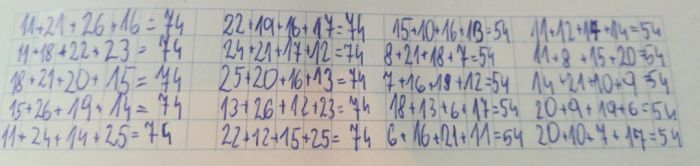 11+21+26+16=74 22+19+16+17=74 15+10+16+13=54 11+12+17+14=54
11+18+22+23=74 24+21+17+12=74 8+21+18+7=54 11+8+15+20=54
18+21+20+15=74 25+20+16+13=74 7+16+19+12=54 14+21+10+9=54
15+26+19+14=74 13+26+12+23=74 18+13+6+17=54 20+9+19+6=54
11+24+14+25=74 22+12+15+25=74 6+16+21+11=54 20+10+7+17=54